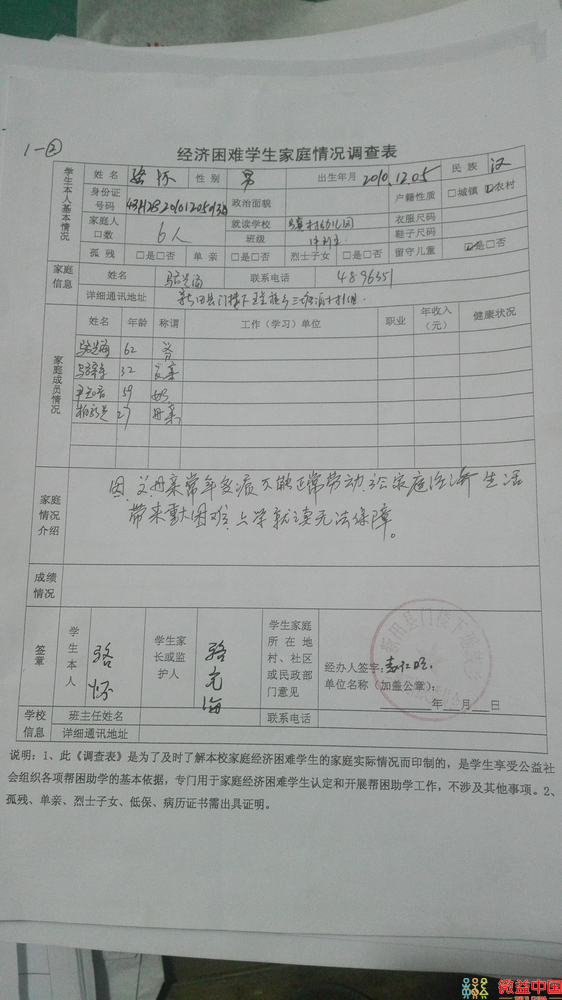 1-②
经济困难学生家庭情况调查表
学生本人基本情况
姓名 骆怀 性别 男 出生年月 2010.12.05 民族 汉
身份证号码 政治面貌 户籍性质 □城镇 ☑农村
家庭人口数 6人 就读学校 幼儿园 衣服尺码
班级 鞋子尺码
孤残 □是□否 单亲 □是□否 烈士子女 □是□否 留守儿童 ☑是□否
家庭信息
姓名 联系电话 4896351
详细通讯地址 新田县门楼下
家庭成员情况
姓名 年龄 称谓 工作(学习)单位 职业 年收入(元) 健康状况
62 爷
32 父亲
59 奶
27 母亲
家庭情况介绍
因父母亲常年多病不能正常劳动,给家庭经济生活
带来重大困难,上学就读无法保障。
成绩情况
签章
学生本人 骆怀
学生家长或监护人 骆克海
学生家庭所在地村、社区或民政部门意见
新田县门楼下
经办人签字:
单位名称(加盖公章):
年 月 日
学校信息
班主任姓名 联系电话
详细通讯地址
说明:1、此《调查表》是为了及时了解本校家庭经济困难学生的家庭实际情况而印制的,是学生享受公益社
会组织各项帮困助学的基本依据,专门用于家庭经济困难学生认定和开展帮困助学工作,不涉及其他事项。2、
孤残、单亲、烈士子女、低保、病历证书需出具证明。
微益中国